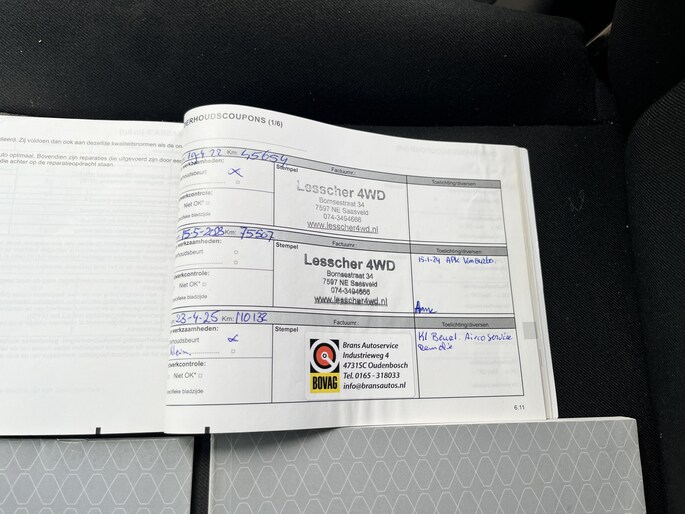 teerd. Zij voldoen dan ook aan dezelfde kwaliteitsnormen als de
uto optimaal. Bovendien zijn reparaties die uitgevoerd zijn door een
achter op de reparatieopdracht staan.
ERHOUDSCOUPONS (1/6)
19-4 22 Km: 45654
Factuurnr.
Toelichting/diversen
werkzaamheden:
Stempel
houdsbeurt x
Lesscher 4WD
Bornsestraat 34
7597 NE Saasveld
074-3494666
www.lesscher4wd.nl
werkcontrole:
Niet OK*
specifieke bladzijde
15-5-2023 Km: 75507
Factuurnr.
Toelichting/diversen
werkzaamheden:
Stempel
houdsbeurt
Lesscher 4WD
Bornsestraat 34
7597 NE Saasveld
074-3494666
www.lesscher4wd.nl
15-1-24 APK
werkcontrole:
Niet OK*
specifieke bladzijde
23-4-25 Km: 110132
Factuurnr.
Toelichting/diversen
werkzaamheden:
Stempel
houdsbeurt x
Klein
BOVAG
Brans Autoservice
Industrieweg 4
4731SC Oudenbosch
Tel. 0165 - 318033
info@bransautos.nl
Kl Beurt. Airco service
werkcontrole:
Niet OK*
specifieke bladzijde
6.11